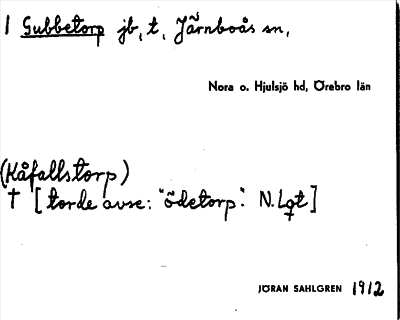 1 Gubbetorp jb, t, Järnboås sn,
Nora o. Hjulsjö hd, Örebro län
(Kåfallstorp)
† [torde avse: "ödetorp". N. Lqt]
JÖRAN SAHLGREN 1912